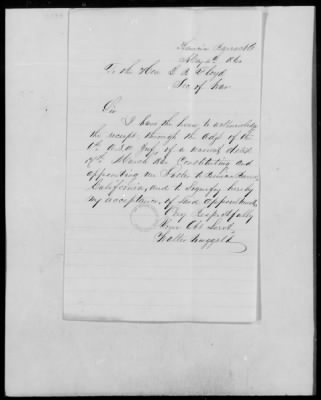 Benicia Barracks
May 2d 1860
To the Hon. J. B. Floyd
Sec of War
Sir
I have the honor to acknowledge
the receipt through the Adjt of the
of a warrant dated
March Constituting and
appointing me Sutler to Benicia Barracks
California, and to signify hereby
my acceptance of said appointment
Very Respectfully
Your Obt Servt
Walter